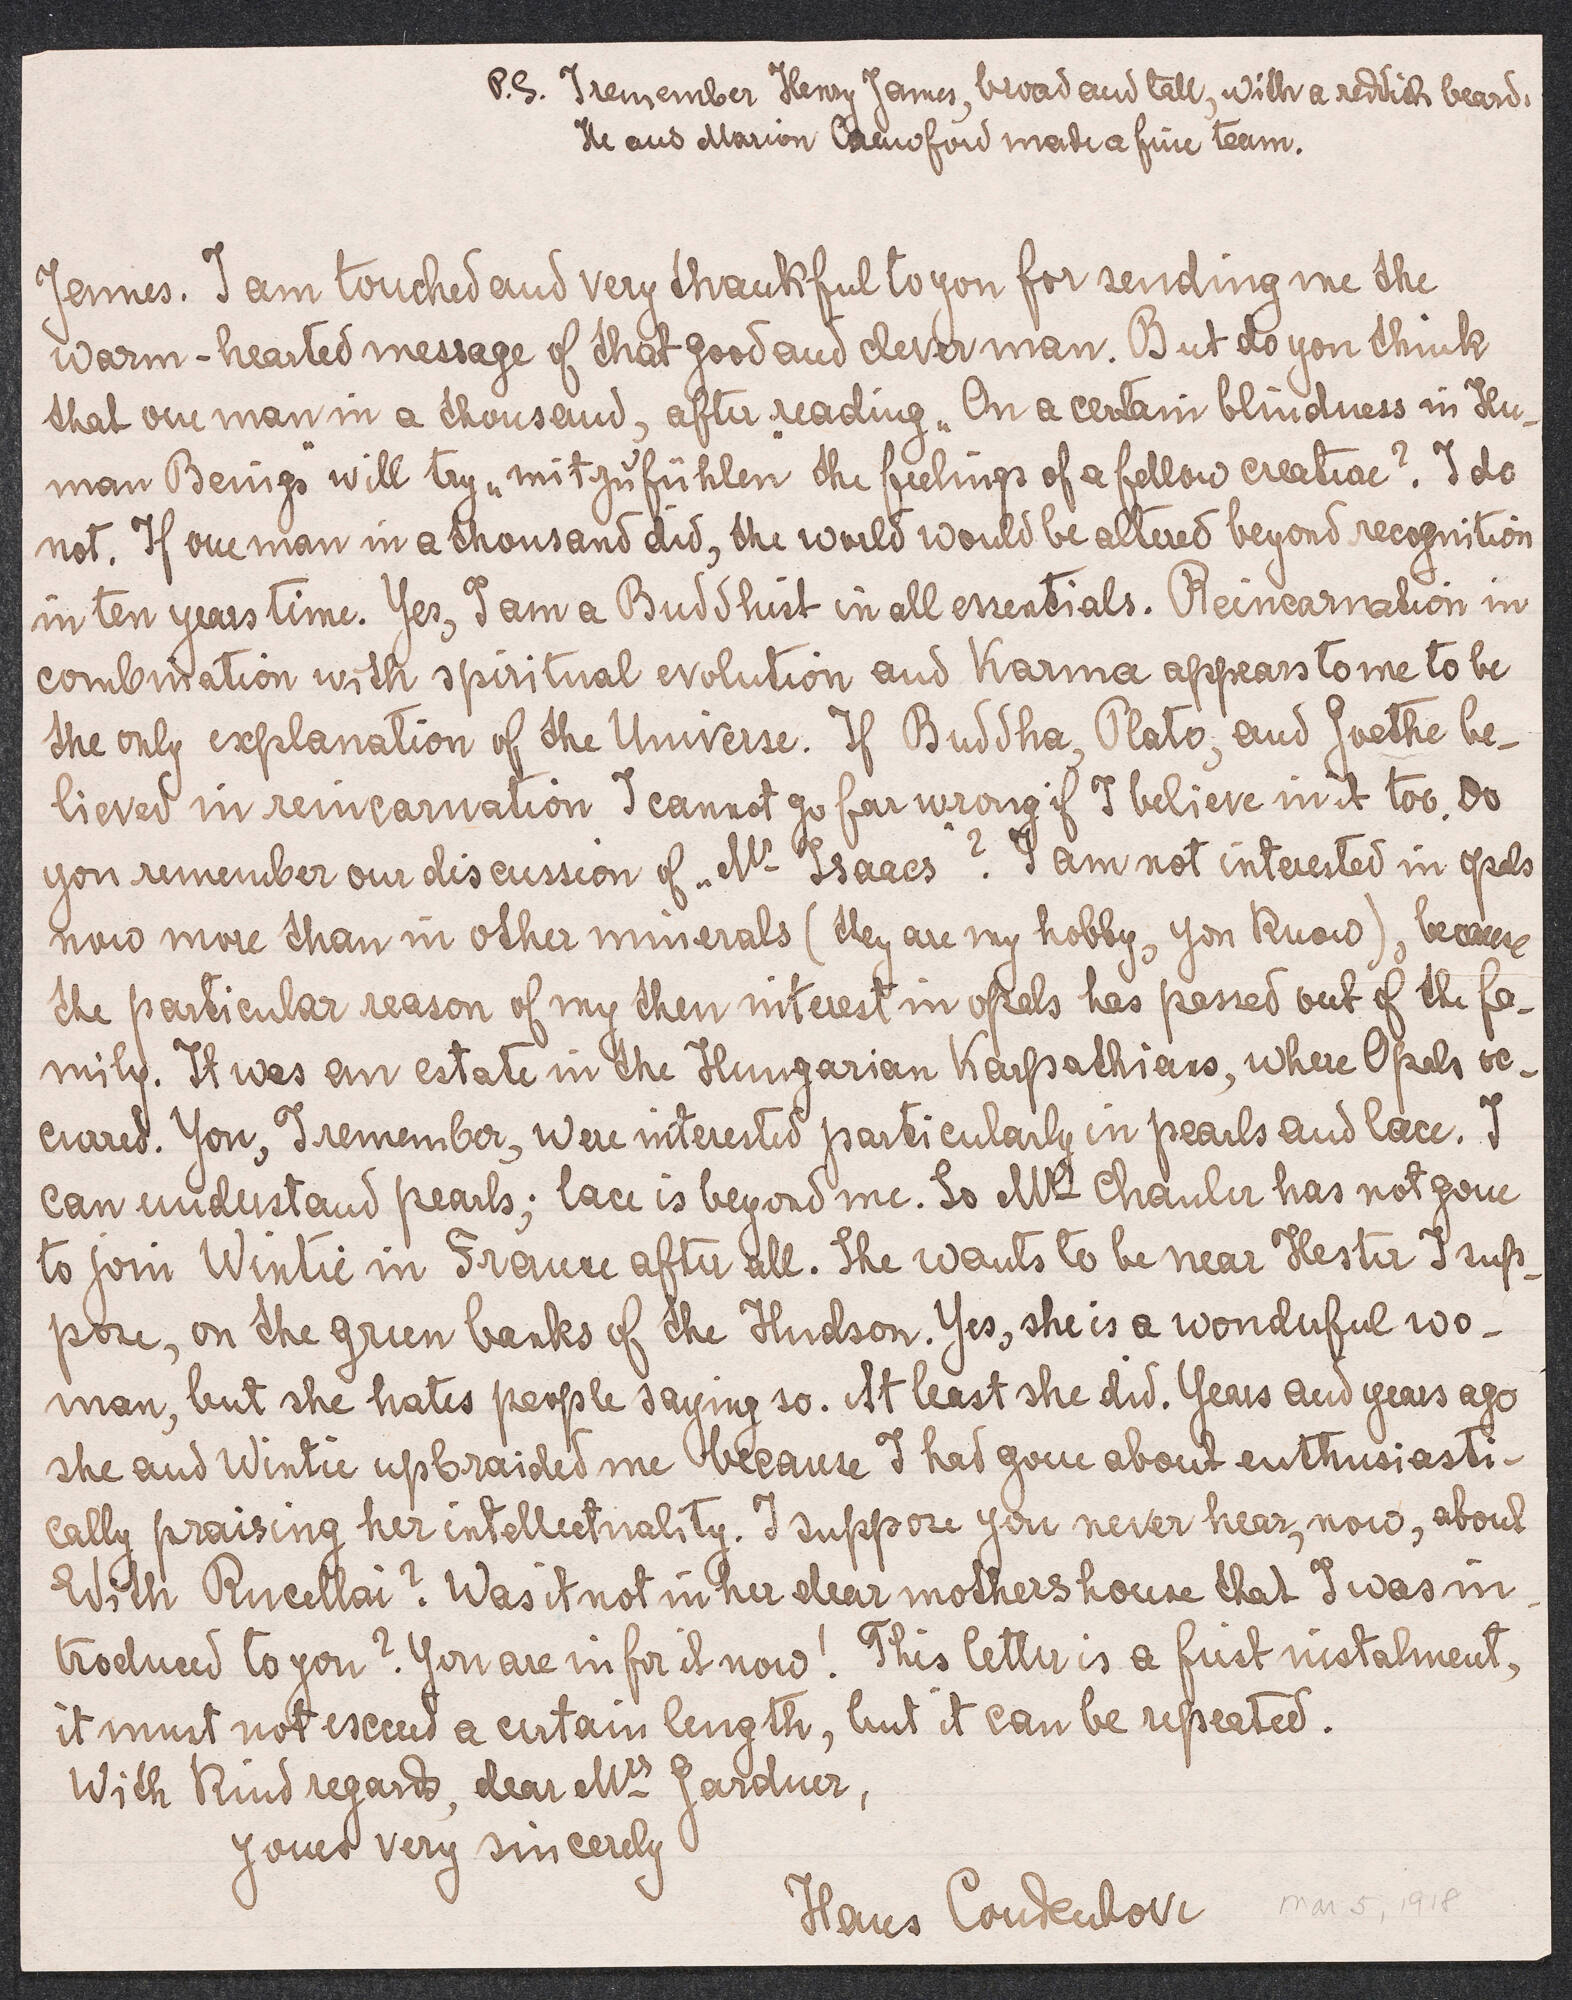 P.S. I remember Henry James, broad and tall, with a reddish beard.
He and Marion Crawford made a fine team.
James. I am touched and very thankful to you for sending me the
warm-hearted message of that good and clever man. But do you think
that one man in a thousand, after reading „On a certain blindness in Hu-
man Beings" will try „mitzufühlen" the feelings of a fellow creature? I do
not. If one man in a thousand did, the world would be altered beyond recognition
in ten years time. Yes, I am a Buddhist in all essentials. Reincarnation in
combination with spiritual evolution and Karma appears to me to be
the only explanation of the Universe. If Buddha, Plato, and Goethe be-
lieved in reincarnation I cannot go far wrong if I believe in it too. Do
you remember our discussion of „Mr Isaacs"? I am not interested in opals
now more than in other minerals (they are my hobby, you know), because
the particular reason of my then interest in opals has passed out of the fa-
mily. It was an estate in the Hungarian Karpathians, where Opals oc-
curred. You, I remember, were interested particularly in pearls and lace. I
can understand pearls; lace is beyond me. So Mrs Chanler has not gone
to join Wintie in France after all. She wants to be near Hester I sup-
pose, on the green banks of the Hudson. Yes, she is a wonderful wo-
man, but she hates people saying so. At least she did. Years and years ago
she and Wintie upbraided me because I had gone about enthusiasti-
cally praising her intellectuality. I suppose you never hear, now, about
Edith Rucellai? Was it not in her dear mothers house that I was in-
troduced to you? You are in for it now! This letter is a first instalment,
it must not exceed a certain length, but it can be repeated.
With kind regards, dear Mrs Gardner,
yours very sincerely
Hans Coudenhove
Mar 5, 1918